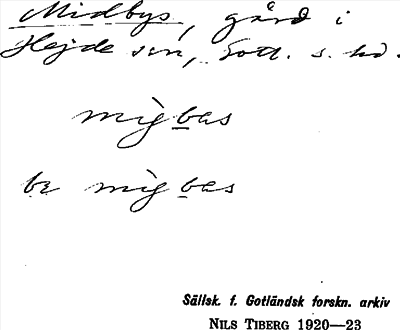 Midbys, gård i
Hejde sn, Gotl. s. hd.
mìgbas
be mìgbas
Sällsk. f. Gotländsk forskn. arkiv
NILS TIBERG 1920—23